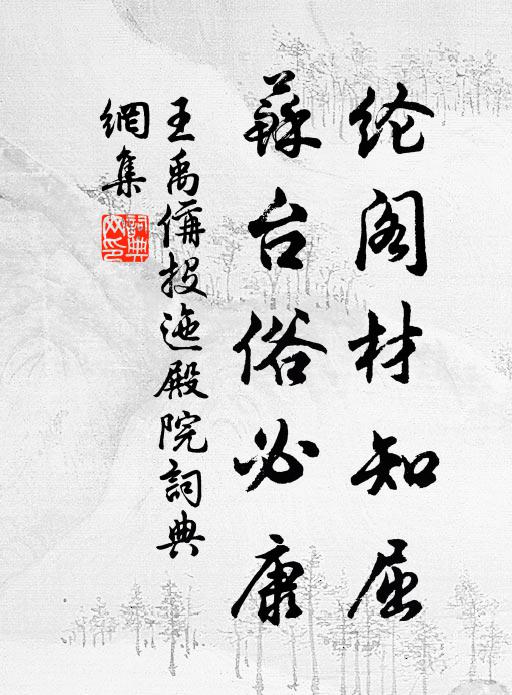 纶阁材知屈
蘇台俗必康
王禹偁投迤殿院詞典
網集
詞典
网印